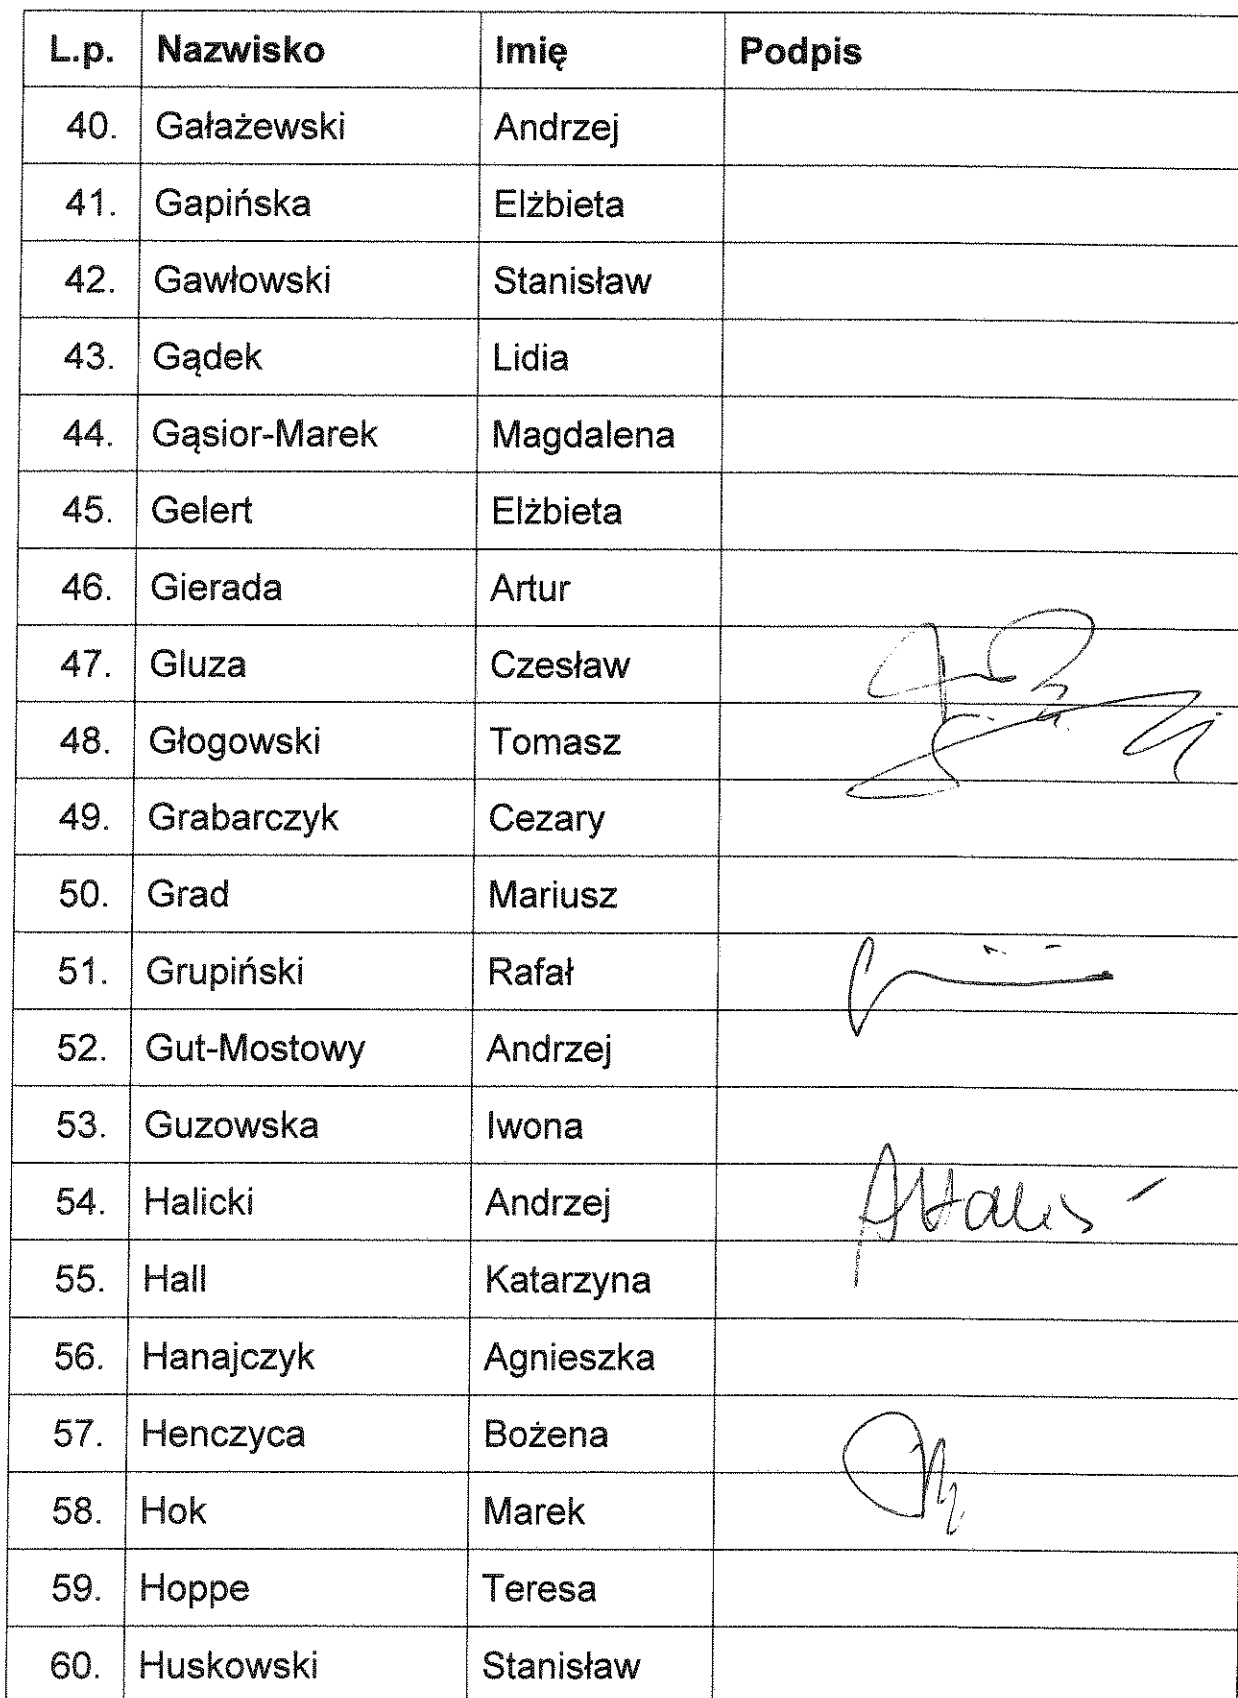 L.p. Nazwisko Imię Podpis
40. Gałażewski Andrzej
41. Gapińska Elżbieta
42. Gawłowski Stanisław
43. Gądek Lidia
44. Gąsior-Marek Magdalena
45. Gelert Elżbieta
46. Gierada Artur
47. Gluza Czesław
48. Głogowski Tomasz
49. Grabarczyk Cezary
50. Grad Mariusz
51. Grupiński Rafał
52. Gut-Mostowy Andrzej
53. Guzowska Iwona
54. Halicki Andrzej
55. Hall Katarzyna
56. Hanajczyk Agnieszka
57. Henczyca Bożena
58. Hok Marek
59. Hoppe Teresa
60. Huskowski Stanisław